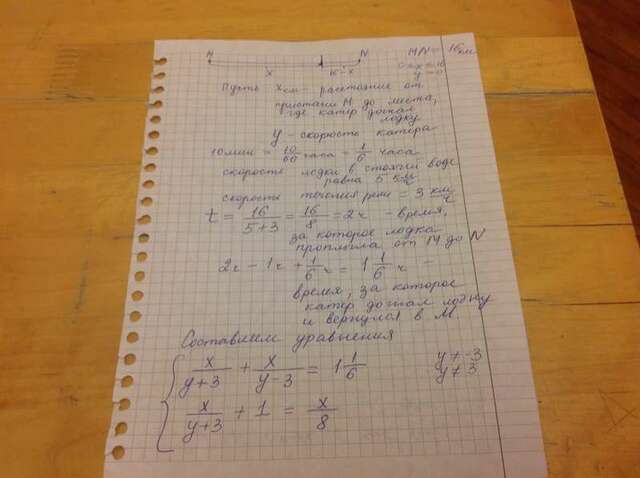 M N MN = 16 км
x 16-x 0<x<16
y>0
Пусть x км - расстояние от
пристани M до места,
где катер догнал
лодку
y - скорость катера
10 мин = 10/60 часа = 1/6 часа
скорость лодки в стоячей воде
равна 5 км/ч
скорость течения реки = 3 км/ч
t = 16/(5+3) = 16/8 = 2ч - время,
за которое лодка
проплыла от M до N
2ч - 1ч + 1/6 ч = 1 1/6 ч -
время, за которое
катер догнал лодку
и вернулся в M.
Составим уравнения
x/(y+3) + x/(y-3) = 1 1/6 y ≠ -3
y ≠ 3
x/(y+3) + 1 = x/8